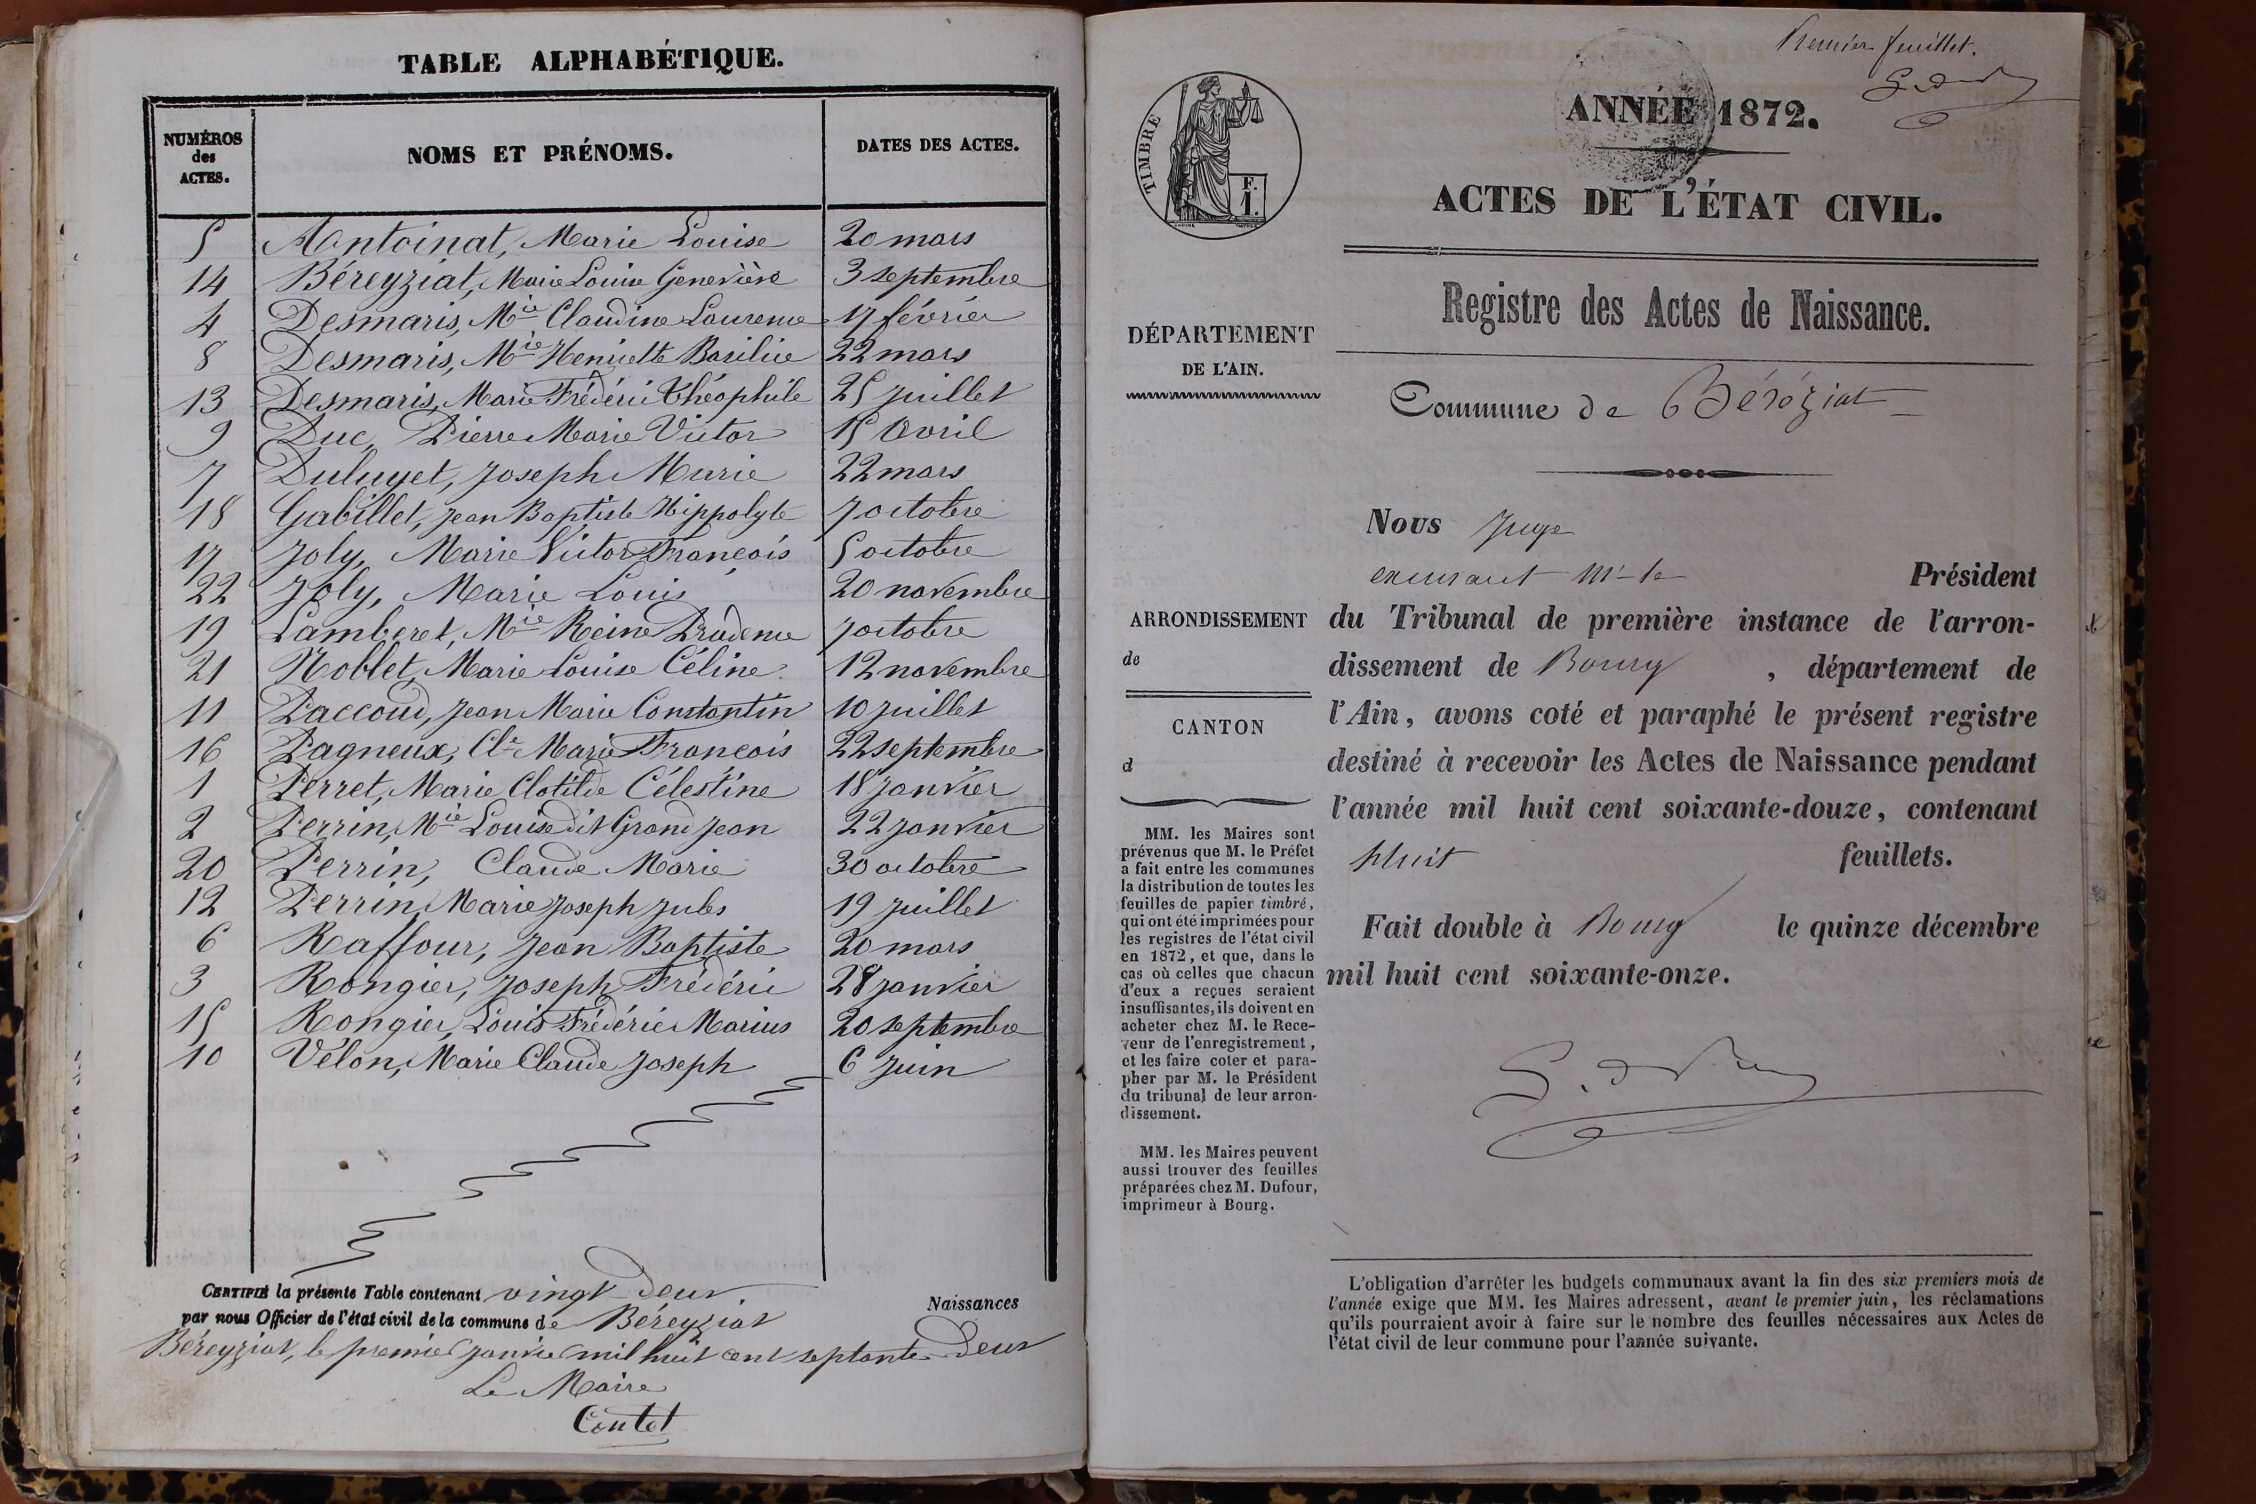 TABLE ALPHABÉTIQUE.
NUMÉROS des ACTES. NOMS ET PRÉNOMS. DATES DES ACTES.
5 Antoinat, Marie Louise 20 mars
14 Béreyziat, Marie Louise Geneviève 3 septembre
4 Desmaris, Mie Claudine Laurence 17 février
8 Desmaris, Mie Henriette Basilice 22 mars
13 Desmaris, Marie Frédéric Théophile 25 juillet
9 Duc, Pierre Marie Victor 15 Avril
7 Duluyet, Joseph Marie 22 mars
18 Gabillet, Jean Baptiste Hippolyte 7 octobre
17 Joly, Marie Victor François 5 octobre
22 Joly, Marie Louis 20 novembre
19 Lamberet, Mie Reine Prudence 7 octobre
21 Noblet, Marie Louise Céline 12 novembre
11 Paccoud, Jean Marie Constantin 10 juillet
16 Pagneux, Cle Marie François 22 septembre
1 Perret, Marie Clotilde Célestine 18 janvier
2 Perrin, Mie Louise dit Grand Jean 22 janvier
20 Perrin, Claude Marie 30 octobre
12 Perrin, Marie Joseph Jules 19 juillet
6 Raffour, Jean Baptiste 20 mars
3 Rongier, Joseph Frédéric 28 janvier
15 Rongier, Louis Frédéric Marius 20 septembre
10 Vélon, Marie Claude Joseph 6 juin
CERTIFIÉ la présente Table contenant vingt deux Naissances
par nous Officier de l'état civil de la commune de Béreyziat
Béreyziat, le premier janvier mil huit cent septante deux
Le Maire
Contet
Premier feuillet.
TIMBRE
F. 1.
ANNÉE 1872.
ACTES DE L'ÉTAT CIVIL.
Registre des Actes de Naissance.
DÉPARTEMENT
DE L'AIN.
Commune de Béréziat
ARRONDISSEMENT
de
CANTON
d
MM. les Maires sont
prévenus que M. le Préfet
a fait entre les communes
la distribution de toutes les
feuilles de papier timbré,
qui ont été imprimées pour
les registres de l'état civil
en 1872, et que, dans le
cas où celles que chacun
d'eux a reçues seraient
insuffisantes, ils doivent en
acheter chez M. le Rece-
veur de l'enregistrement,
et les faire coter et para-
pher par M. le Président
du tribunal de leur arron-
dissement.
MM. les Maires peuvent
aussi trouver des feuilles
préparées chez M. Dufour,
imprimeur à Bourg.
Nous Juge
Président
du Tribunal de première instance de l'arron-
dissement de Bourg, département de
l'Ain, avons coté et paraphé le présent registre
destiné à recevoir les Actes de Naissance pendant
l'année mil huit cent soixante-douze, contenant
huit feuillets.
Fait double à Bourg le quinze décembre
mil huit cent soixante-onze.
L'obligation d'arrêter les budgets communaux avant la fin des six premiers mois de
l'année exige que MM. les Maires adressent, avant le premier juin, les réclamations
qu'ils pourraient avoir à faire sur le nombre des feuilles nécessaires aux Actes de
l'état civil de leur commune pour l'année suivante.